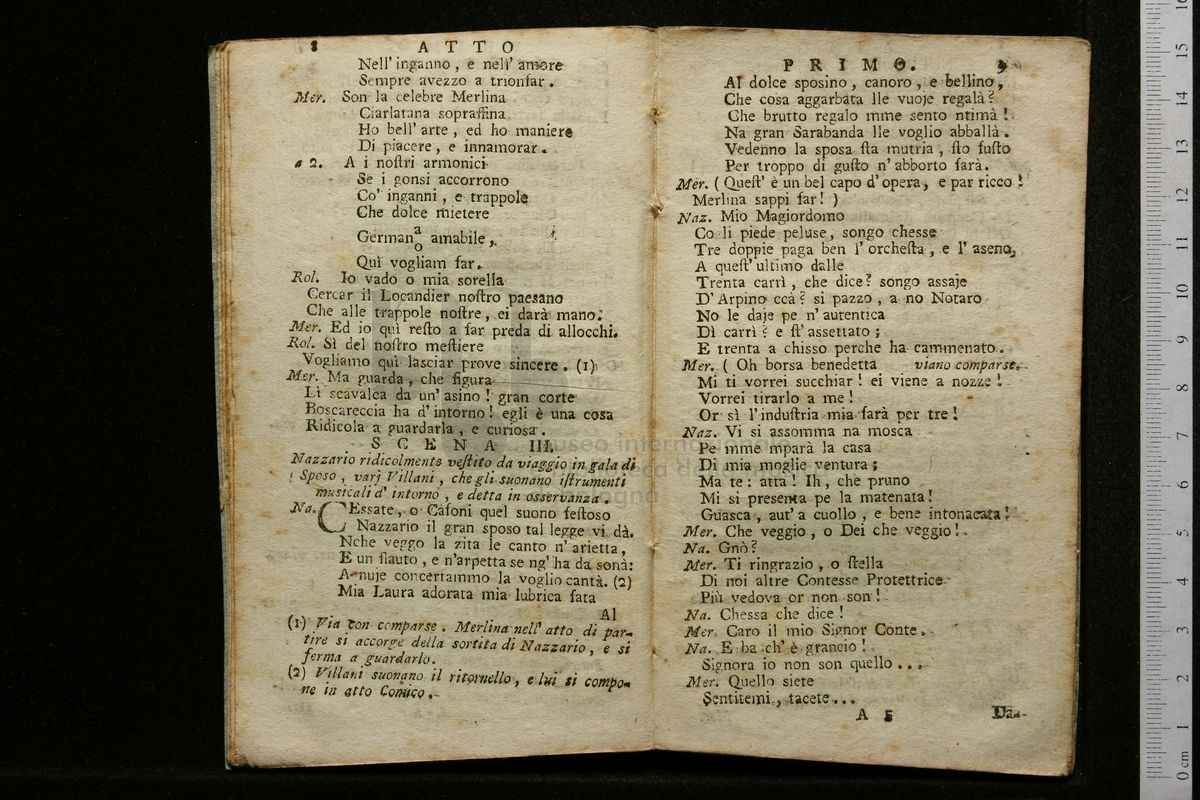 8 ATTO
Nell' inganno, e nell' amore
Sempre avezzo a trionfar.
Mer. Son la celebre Merlina
Ciarlatana sopraffina
Ho bell' arte, ed ho maniere
Di piacere, e innamorar.
a 2. A i nostri armonici
Se i gonsi accorrono
Co' inganni, e trappole
Che dolce mietere
German a/o amabile,
Quì vogliam far.
Rol. Io vado o mia sorella
Cercar il Locandier nostro paesano
Che alle trappole nostre, ei darà mano.
Mer. Ed io quì resto a far preda di allocchi.
Rol. Sì del nostro mestiere
Vogliamo quì lasciar prove sincere. (1)
Mer. Ma guarda, che figura
Lì scavalca da un' asino! gran corte
Boscareccia ha d' intorno! egli è una cosa
Ridicola a guardarla, e curiosa.
SCENA III.
Nazzario ridicolmente vestito da viaggio in gala di
Sposo, varj Villani, che gli suonano istrumenti
musicali d' intorno, e detta in osservanza.
Na. CEssate, o Cafoni quel suono festoso
Nazzario il gran sposo tal legge vi dà.
Nche veggo la zita le canto n' arietta,
E un flauto, e n'arpetta se ng' ha da sonà:
A nuje concertammo la voglio cantà. (2)
Mia Laura adorata mia lubrica fata
Al
(1) Via con comparse. Merlina nell' atto di par-
tire si accorge della sortita di Nazzario, e si
ferma a guardarlo.
(2) Villani suonano il ritornello, e lui si compo-
ne in atto Comico.
PRIMO. 9
Al dolce sposino, canoro, e bellino,
Che cosa aggarbata lle vuoje regalà?
Che brutto regalo mme sento ntimà!
Na gran Sarabanda lle voglio abballà.
Vedenno la sposa sta mutria, sto fusto
Per troppo di gusto n' abborto farà.
Mer. (Quest' è un bel capo d' opera, e par ricco!
Merlina sappi far!)
Naz. Mio Magiordomo
Co li piede peluse, songo chesse
Tre doppie paga ben l' orchesta, e l' aseno,
A quest' ultimo dalle
Trenta carrì, che dice? songo assaje
D' Arpino ccà? si pazzo, a no Notaro
No le daje pe n' autentica
Dì carrì? e st' assettato;
E trenta a chisso perche ha cammenato.
Mer. (Oh borsa benedetta viano comparse.
Mi ti vorrei succhiar! ei viene a nozze!
Vorrei tirarlo a me!
Or sì l' industria mia farà per tre!
Naz. Vi si assomma na mosca
Pe mme mparà la casa
Di mia moglie ventura;
Ma te: atta! Ih, che pruno
Mi si presenta pe la matenata!
Guasca, aut' a cuollo, e bene intonacata!
Mer. Che veggio, o Dei che veggio!
Na. Gnò?
Mer. Ti ringrazio, o stella
Di noi altre Contesse Protettrice
Più vedova or non son!
Na. Chessa che dice!
Mer. Caro il mio Signor Conte.
Na. E ba ch' è grancio!
Signora io non son quello...
Mer. Quello siete
Sentitemi, tacete...
A 5
museo internazionale